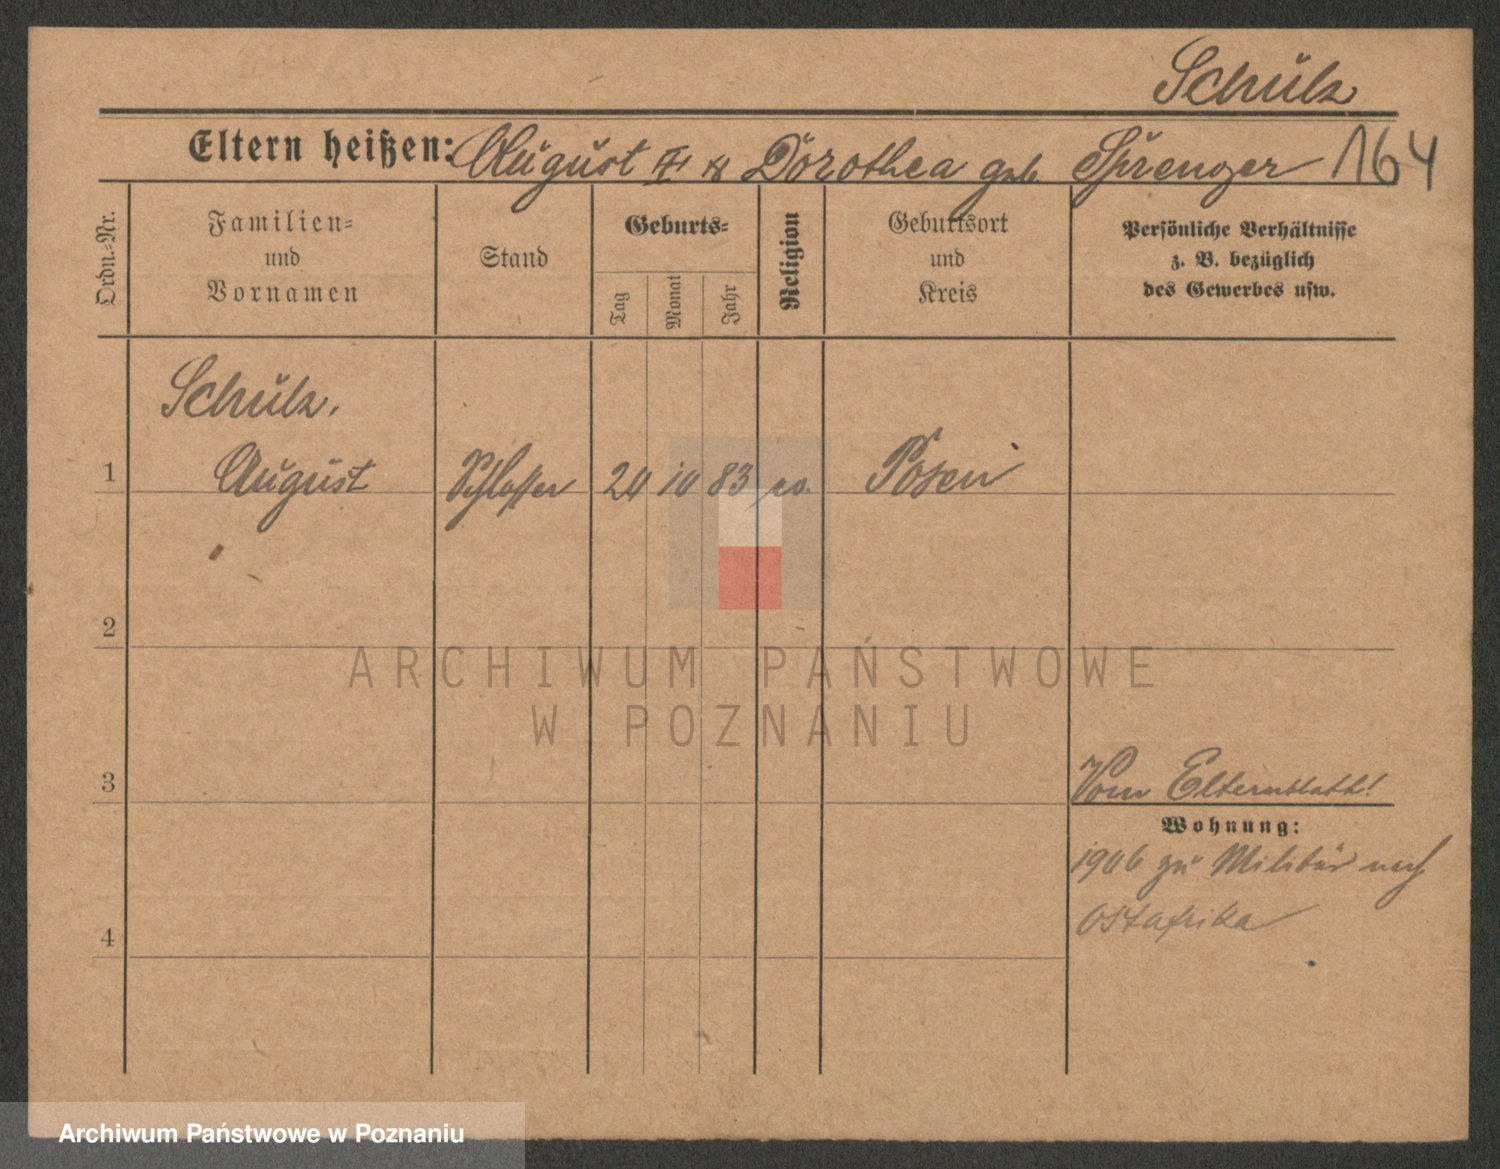 Schulz
Eltern heißen: August II & Dorothea geb. Sprenger 164
Ordn.-Nr.
Familien-
und
Vornamen
Stand
Geburts-
Tag
Monat
Jahr
Religion
Geburtsort
und
Kreis
Persönliche Verhältnisse
z. B. bezüglich
des Gewerbes usw.
Schulz.
1 August Schlosser 24 10 83 ev. Posen
2
3
Vom Elternblatt!
Wohnung:
1906 zu Militär nach
Ostafrika
4
ARCHIWUM PAŃSTWOWE
W POZNANIU
Archiwum Państwowe w Poznaniu